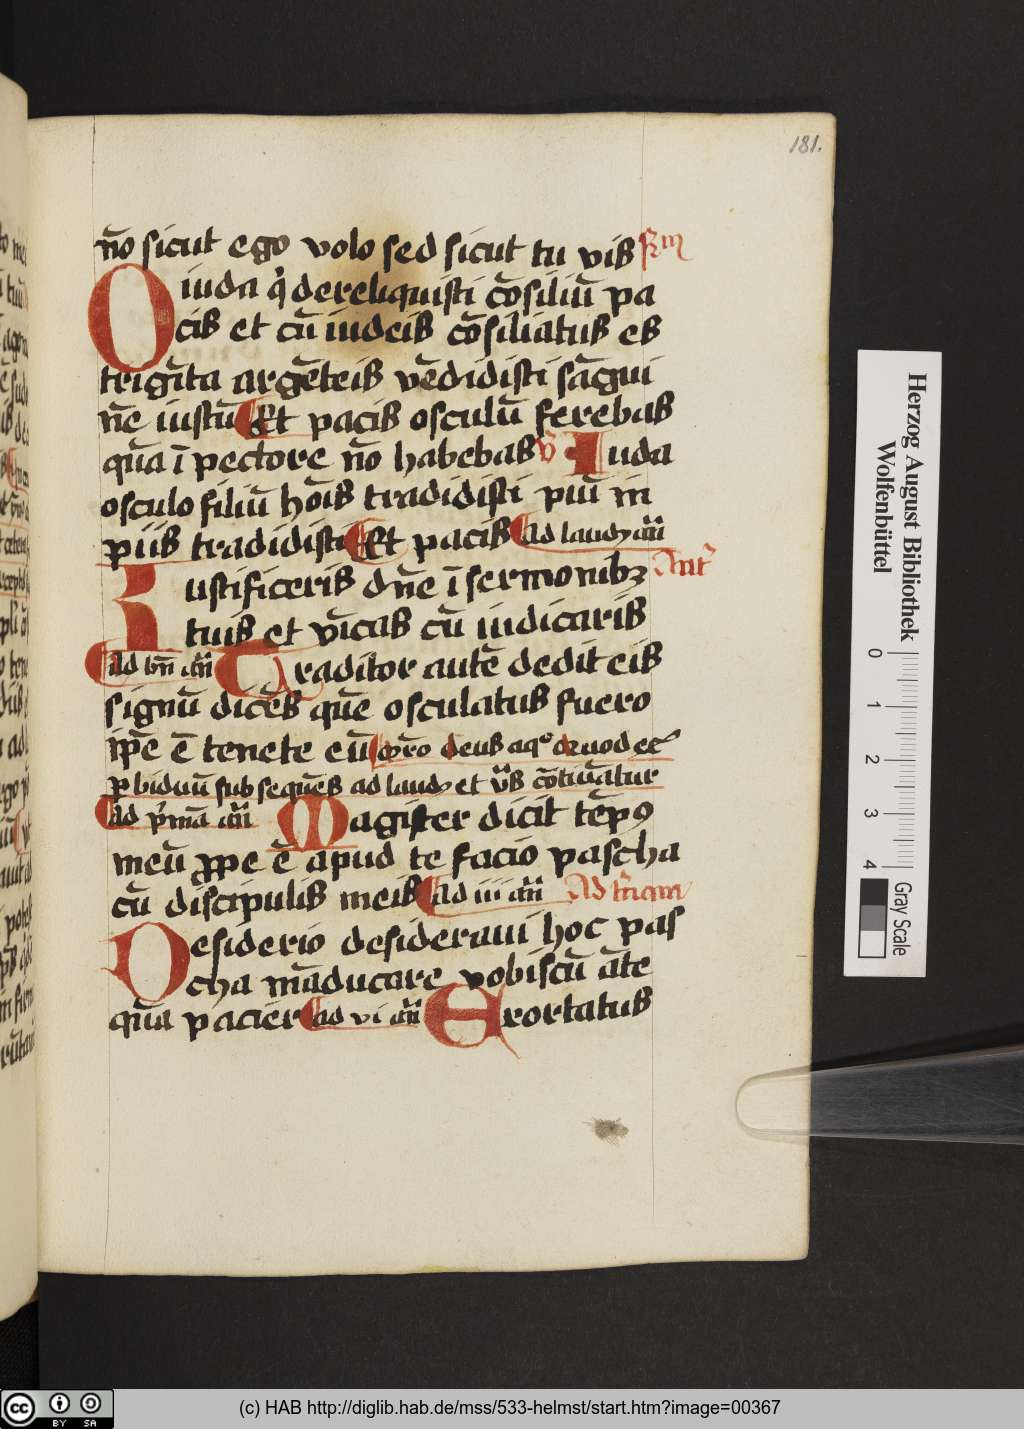 181.
n̄o sicut ego volo sed sicut tu vis
O iuda q̇ dereliquisti c̄osiliū pa
cis et cū iudeis c̄osiliatus es
trigīta argēteis vēdidisti sāgui
nē iustū Et pacis osculū ferebas
quā ī pectore n̄o habebas v̄ Iuda
osculo filiū hoīs tradidisti piū in
piis tradidisti Et pacis Ad laudꝫ an̄
Iustificeris dn̄e ī sermonibꝫ Ant
tuis et vīcas cū iudicaris
Ad bn̄ an̄ Traditor autē dedit eis
signū dicēs quē osculatus fuero
ip̄e ē tenete eū
ꝑ biduū sub sequēs ad laudꝫ et
Ad p̄mā an̄ Magister dicit tēpꝰ
meū ꝓpe ē apud te facio pascha
cū discipulis meis Ad iii an̄
Desiderio desideraui hoc pas
cha māducare vobiscū āte
quā pacier Ad vi an̄ Exortatus
Herzog August Bibliothek
Wolfenbüttel
0
1
2
3
4
Gray Scale
cc BY SA
(c) HAB http://diglib.hab.de/mss/533-helmst/start.htm?image=00367